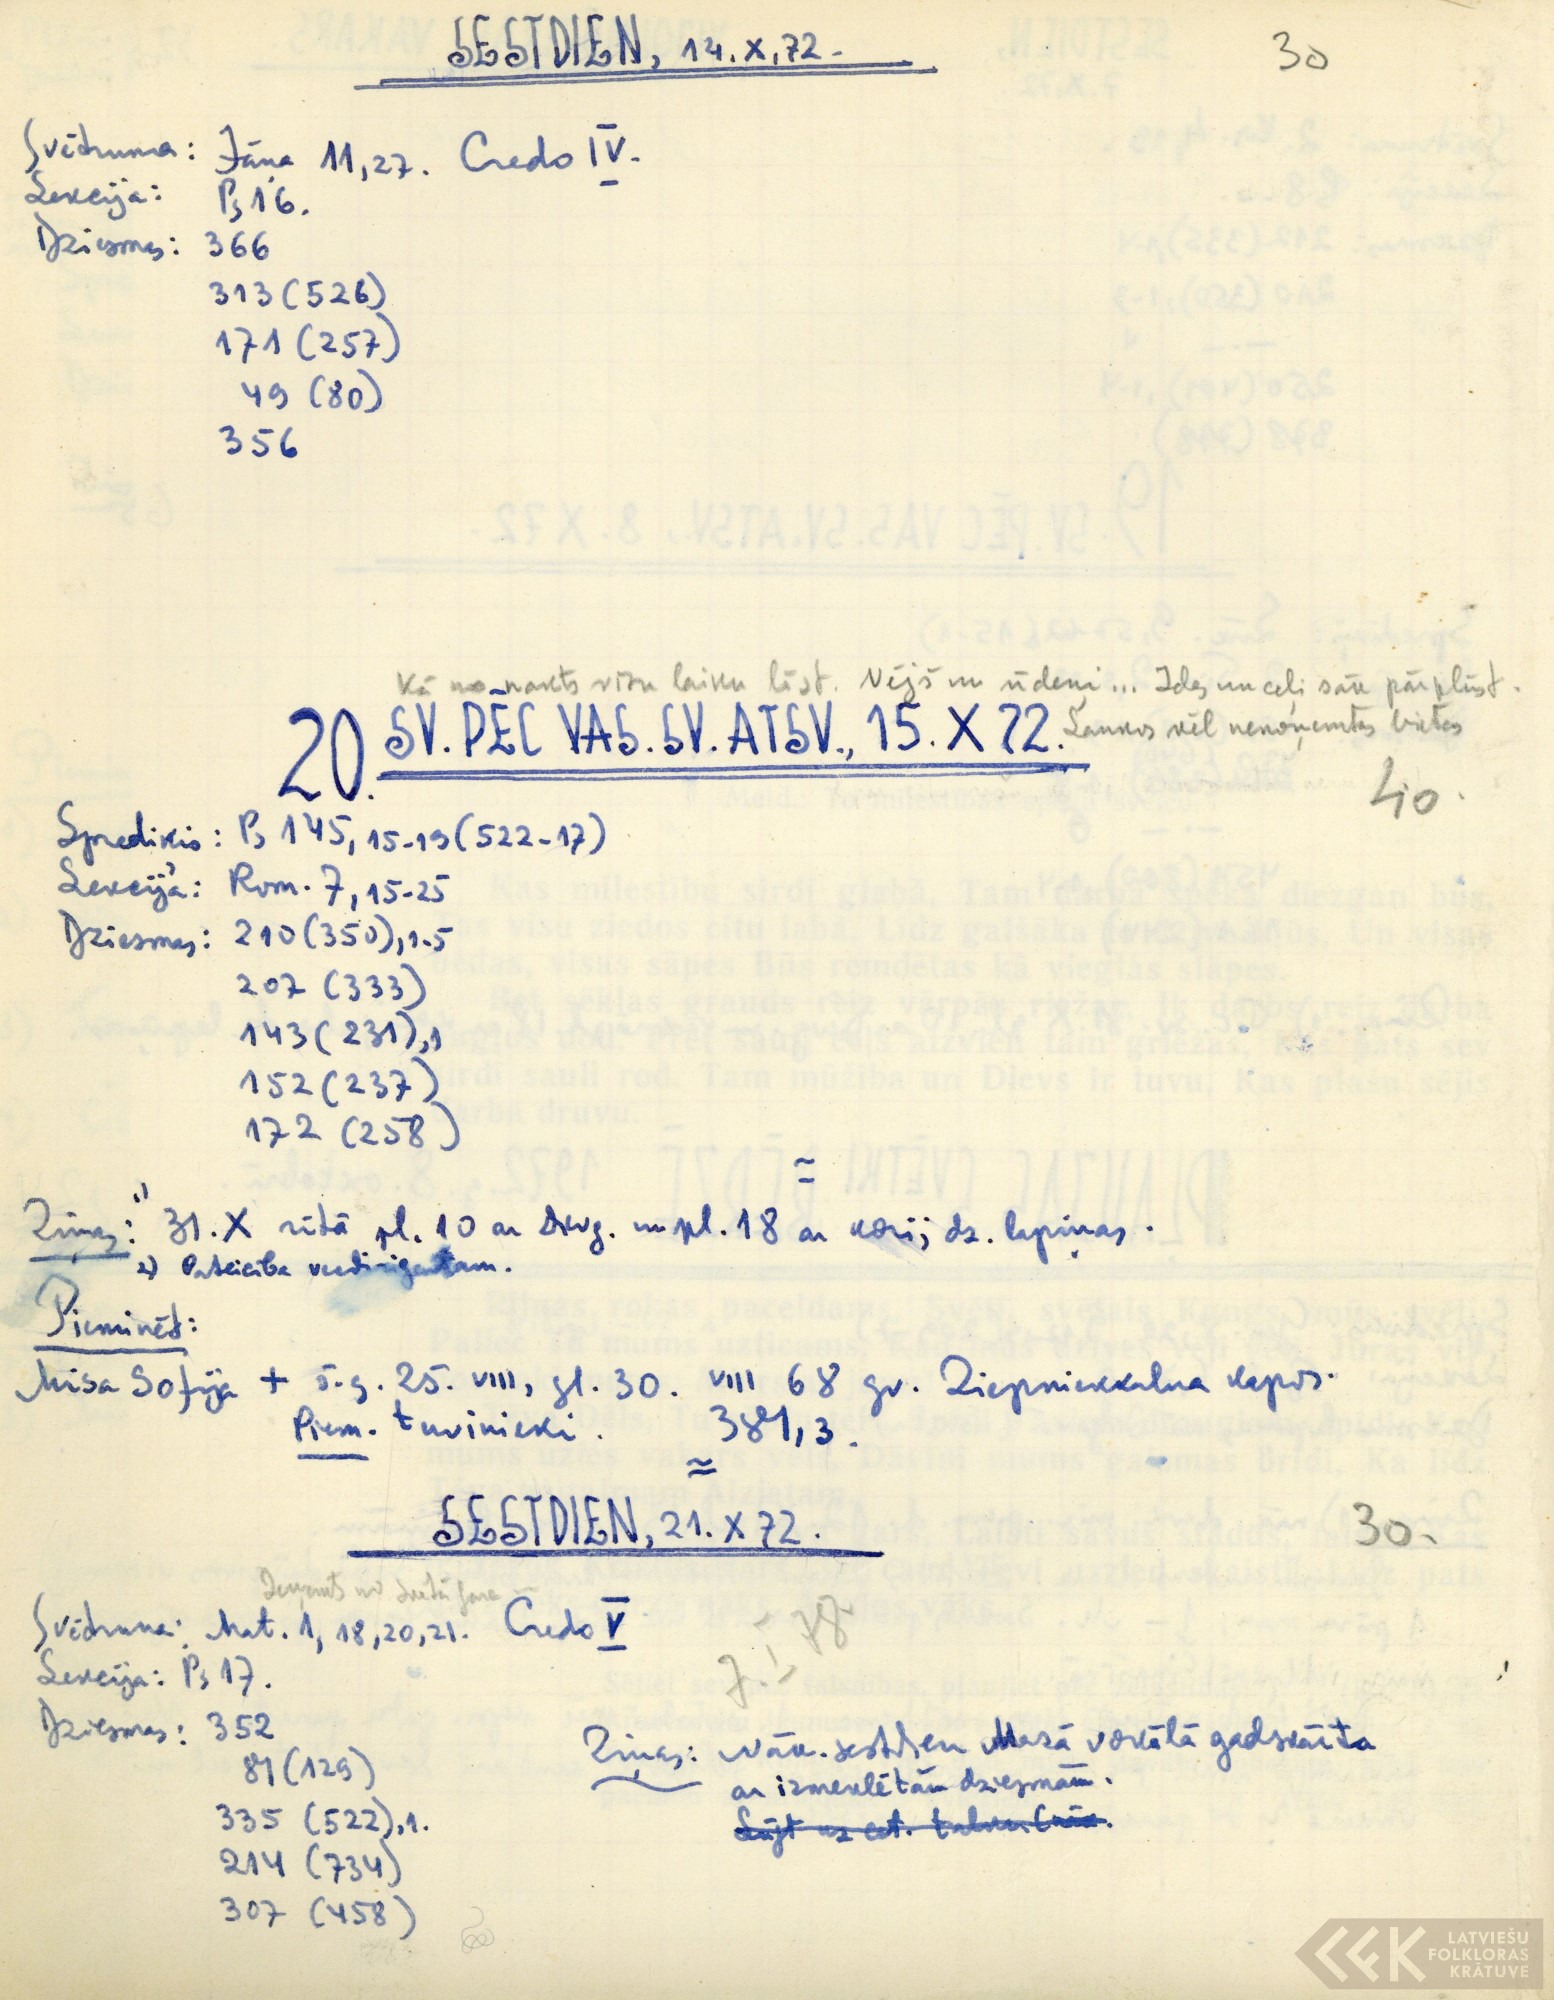 SESTDIEN, 14.X,72.
30
Svētruna: Jāņa 11,27. Credo IV.
Lekcija: Ps 16.
Dziesmas: 366
313 (526)
171 (257)
49 (80)
356
Kā no nakts visu laiku līst. Vējš un ūdeņi... Ielas un ceļi sāk pārplūst.
20. SV. PĒC VAS. SV. ATSV., 15. X 72.
Laukos vēl nenoņemtas bietes
40.
Sprediķis: Ps 145, 15-19 (522-17)
Lekcija: Rom. 7, 15-25
Dziesmas: 210 (350), 1.5
207 (333)
143 (231), 1
152 (237)
172 (258)
Ziņas: 1) 31. X rītā pl. 10 ar dievg. un pl. 18 ar kori; dz. lapiņas.
2) Pateicība
Pieminēt:
Misa Sofija + š.g. 25. VIII, gl. 30. VIII 68 gv. Ziepniekkalna kapos.
Piem. tuvinieki. 381, 3.
SESTDIEN, 21. X 72.
30.
Ieņemts no Svētā Gara
Svētruna: Mat. 1, 18, 20, 21. Credo V
Lekcija: Ps 17.
Dziesmas: 352
81 (129)
335 (522), 1.
214 (734)
307 (458)
Ziņas: Nāk. sestdien Mazā vokālā gadskārta
ar izmeklētām dziesmām.
LATVIEŠU
FOLKLORAS
KRĀTUVE